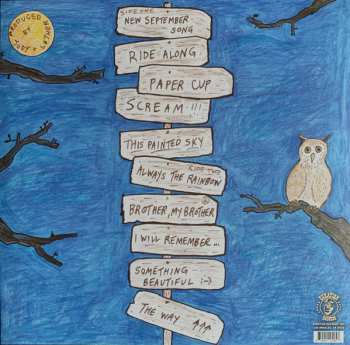 SIDE ONE
NEW SEPTEMBER
SONG
RIDE ALONG
PAPER CUP
SCREAM!!!
THIS PAINTED SKY
SIDE TWO
ALWAYS THE RAINBOW
BROTHER, MY BROTHER
I WILL REMEMBER...
SOMETHING
BEAUTIFUL :-)
THE WAY ↑↑↑
PRODUCED
BY